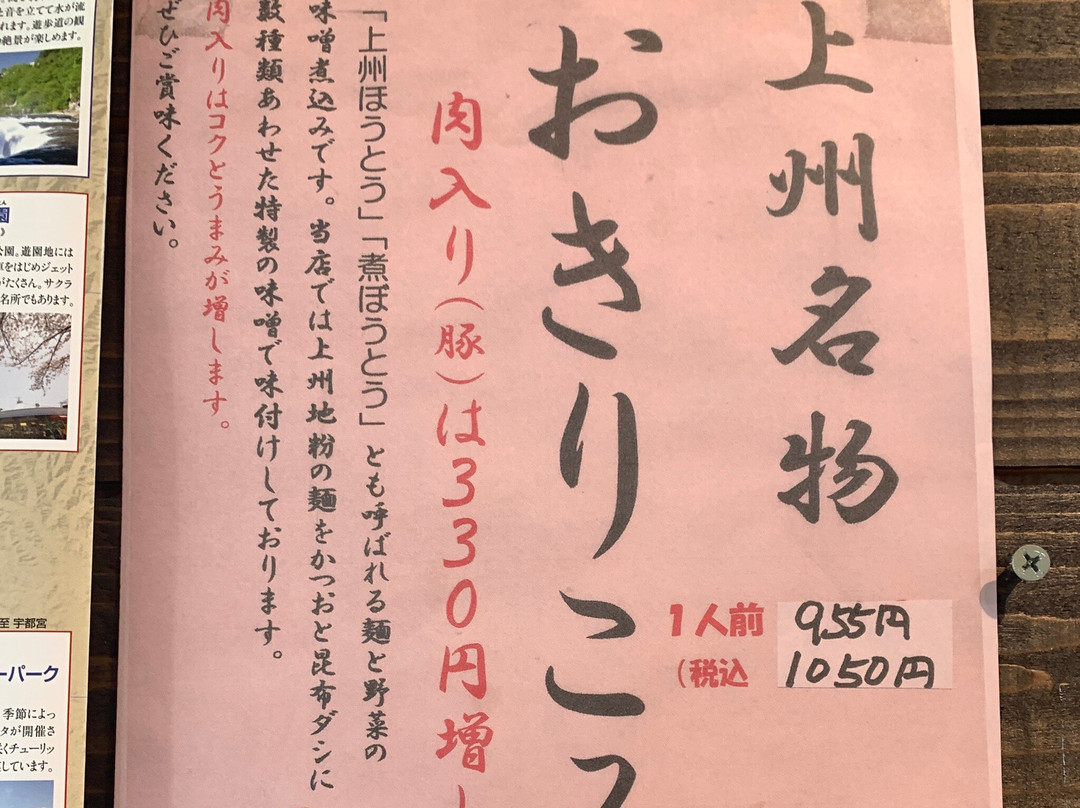 上州名物
おきりこ
1人前 955円
(税込 1050円
肉入り(豚)は330円増
「上州ほうとう」「煮ぼうとう」とも呼ばれる麺と野菜の
味噌煮込みです。当店では上州地粉の麺をかつおと昆布ダシに
数種類あわせた特製の味噌で味付けしております。
肉入りはコクとうまみが増します。
ぜひご賞味ください。
音を立てて水が流
れます。遊歩道の観
絶景が楽しめます。
公園。遊園地には
をはじめジェット
がたくさん。サクラ
名所でもあります。
至 宇都宮
ーパーク
季節によっ
タが開催さ
くチューリッ
しています。